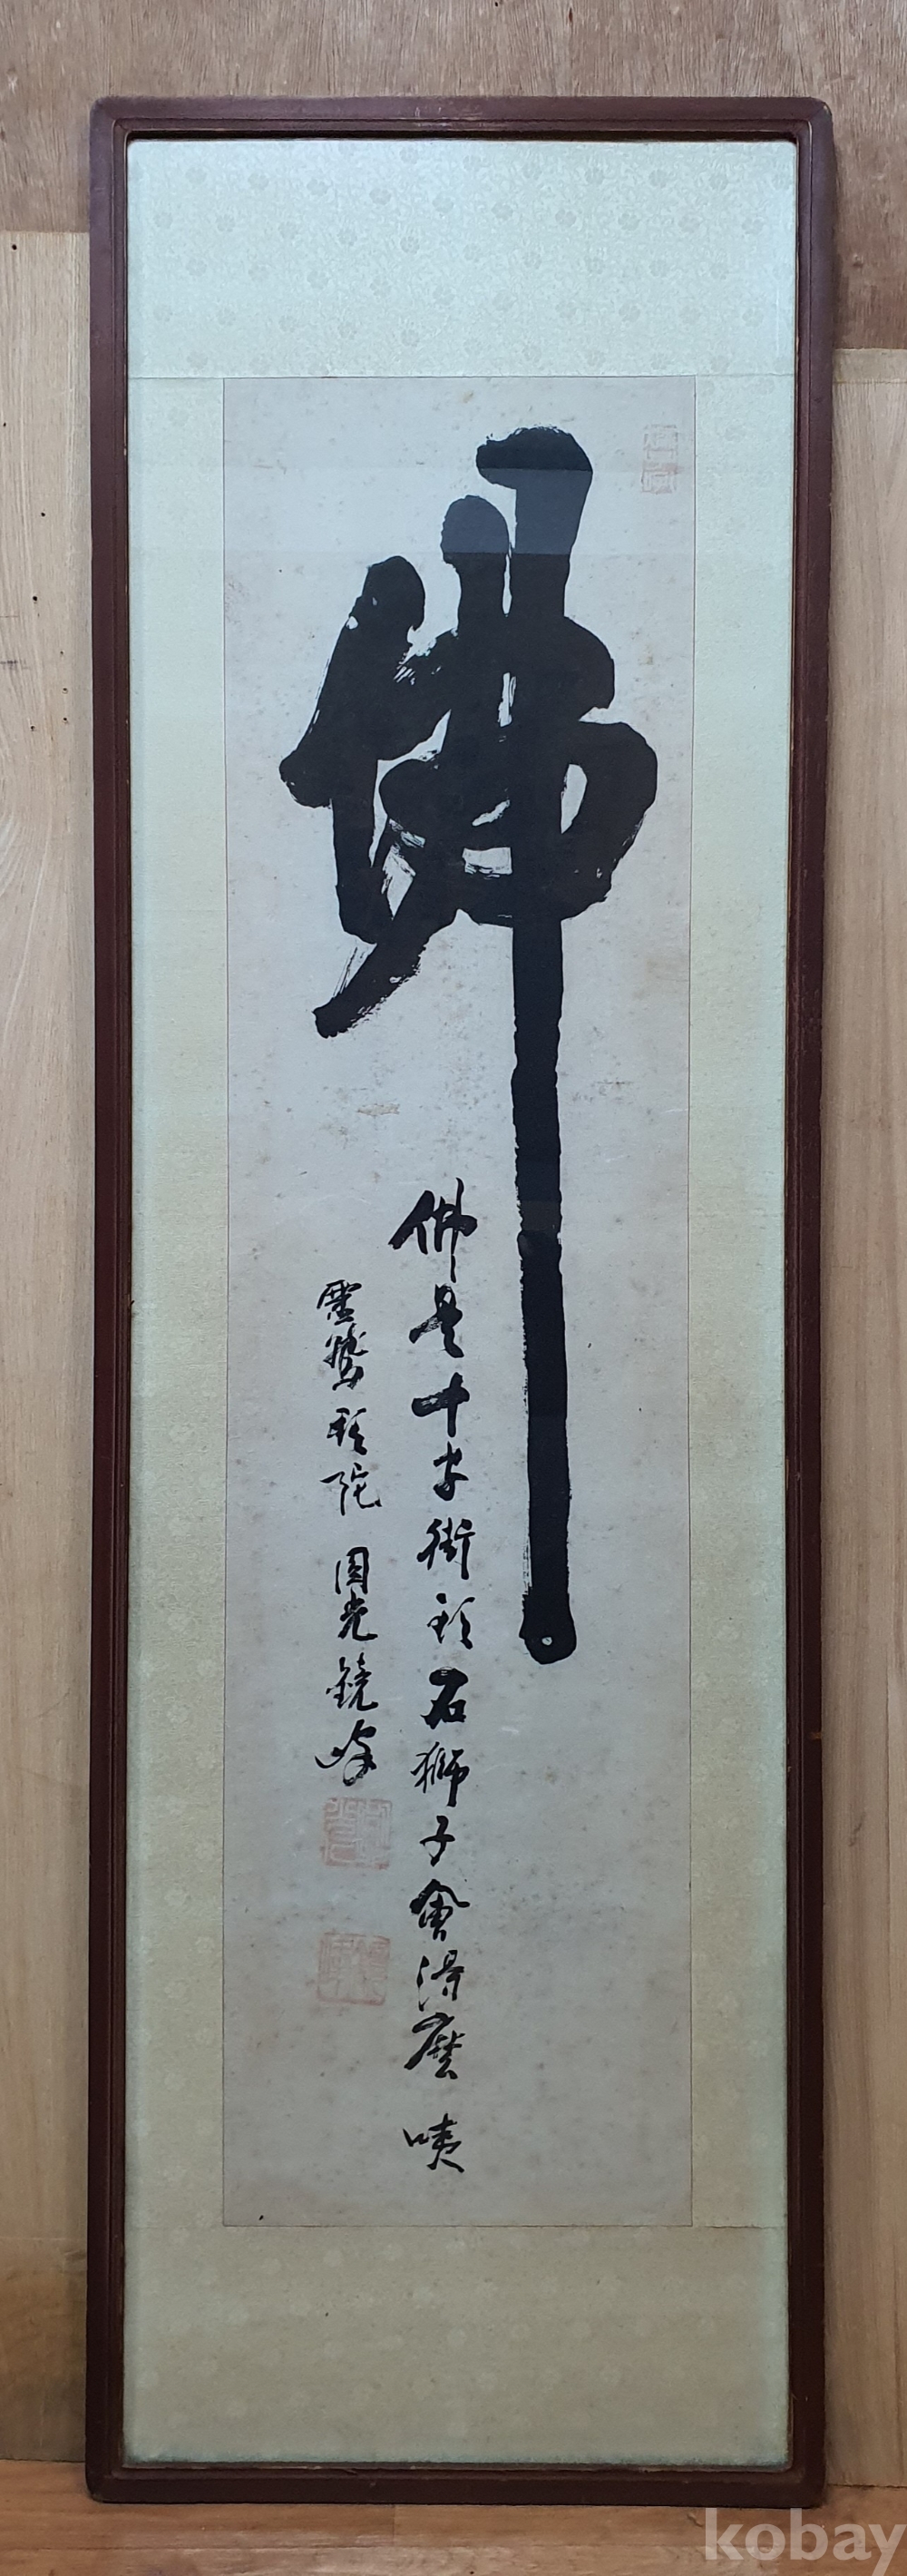 佛
佛是十字街頭石獅子會得麽 咦
靈鷲頭陀 圓光鏡峰
kobay